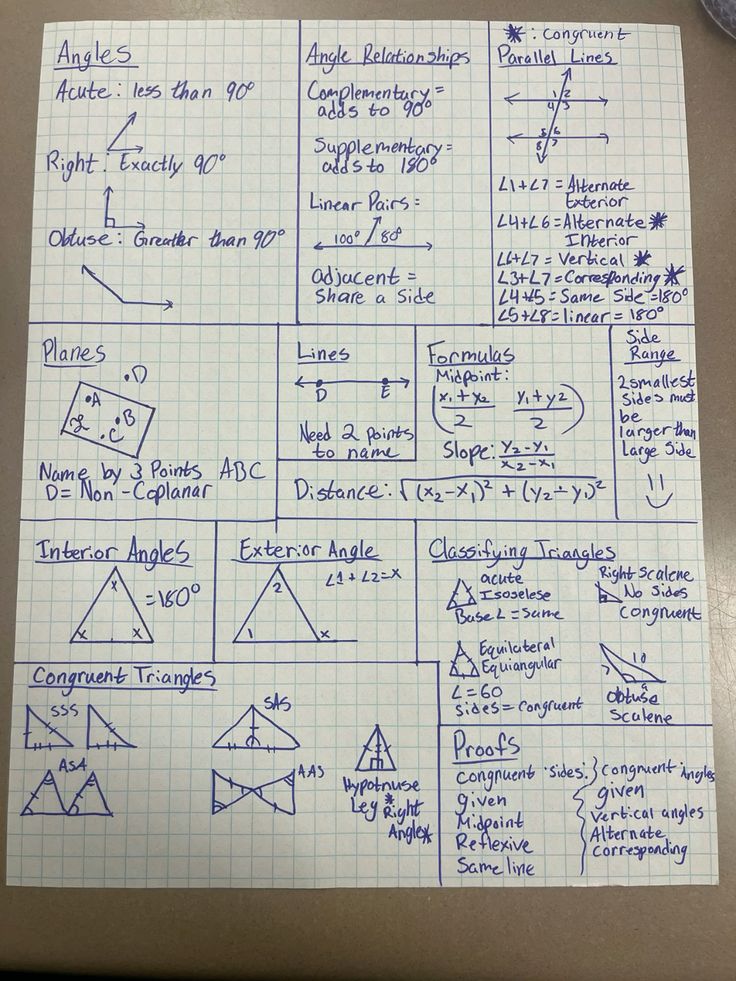 Angles
Acute: less than 90°
Right: Exactly 90°
Obtuse: Greater than 90°
Angle Relationships
Complementary =
adds to 90°
Supplementary =
adds to 180°
Linear Pairs =
100° 80°
adjacent =
Share a Side
*: Congruent
Parallel Lines
1 2
4 3
5 6
8 7
∠1+∠7 = Alternate
Exterior
∠4+∠6 = Alternate *
Interior
∠6+∠7 = Vertical *
∠3+∠7 = Corresponding *
∠4+∠5 = Same Side = 180°
∠5+∠8 = linear = 180°
Planes
D
A
B
C
Name by 3 Points ABC
D = Non-Coplanar
Lines
D E
Need 2 points
to name
Formulas
Midpoint:
(x₁ + x₂ / 2 y₁ + y2 / 2)
Slope: y₂ - y₁ / x₂ - x₁
Distance: √(x₂-x₁)² + (y₂-y₁)²
Side
Range
2 smallest
sides must
be
larger than
Large Side
Interior Angles
x
x x
= 180°
Exterior Angle
∠1 + ∠2 = x
2
1 x
Classifying Triangles
acute
Isoselese
Base ∠ = Same
Right Scalene
No Sides
Congruent
Equilateral
Equiangular
∠ = 60
sides = Congruent
7 10
9
Obtuse
Scalene
Congruent Triangles
SSS
SAS
ASA
AAS
Hypotnuse
Leg * Right
Angle *
Proofs
congruent sides
given
Midpoint
Reflexive
Same line
Congruent Angles
given
vertical angles
Alternate
corresponding